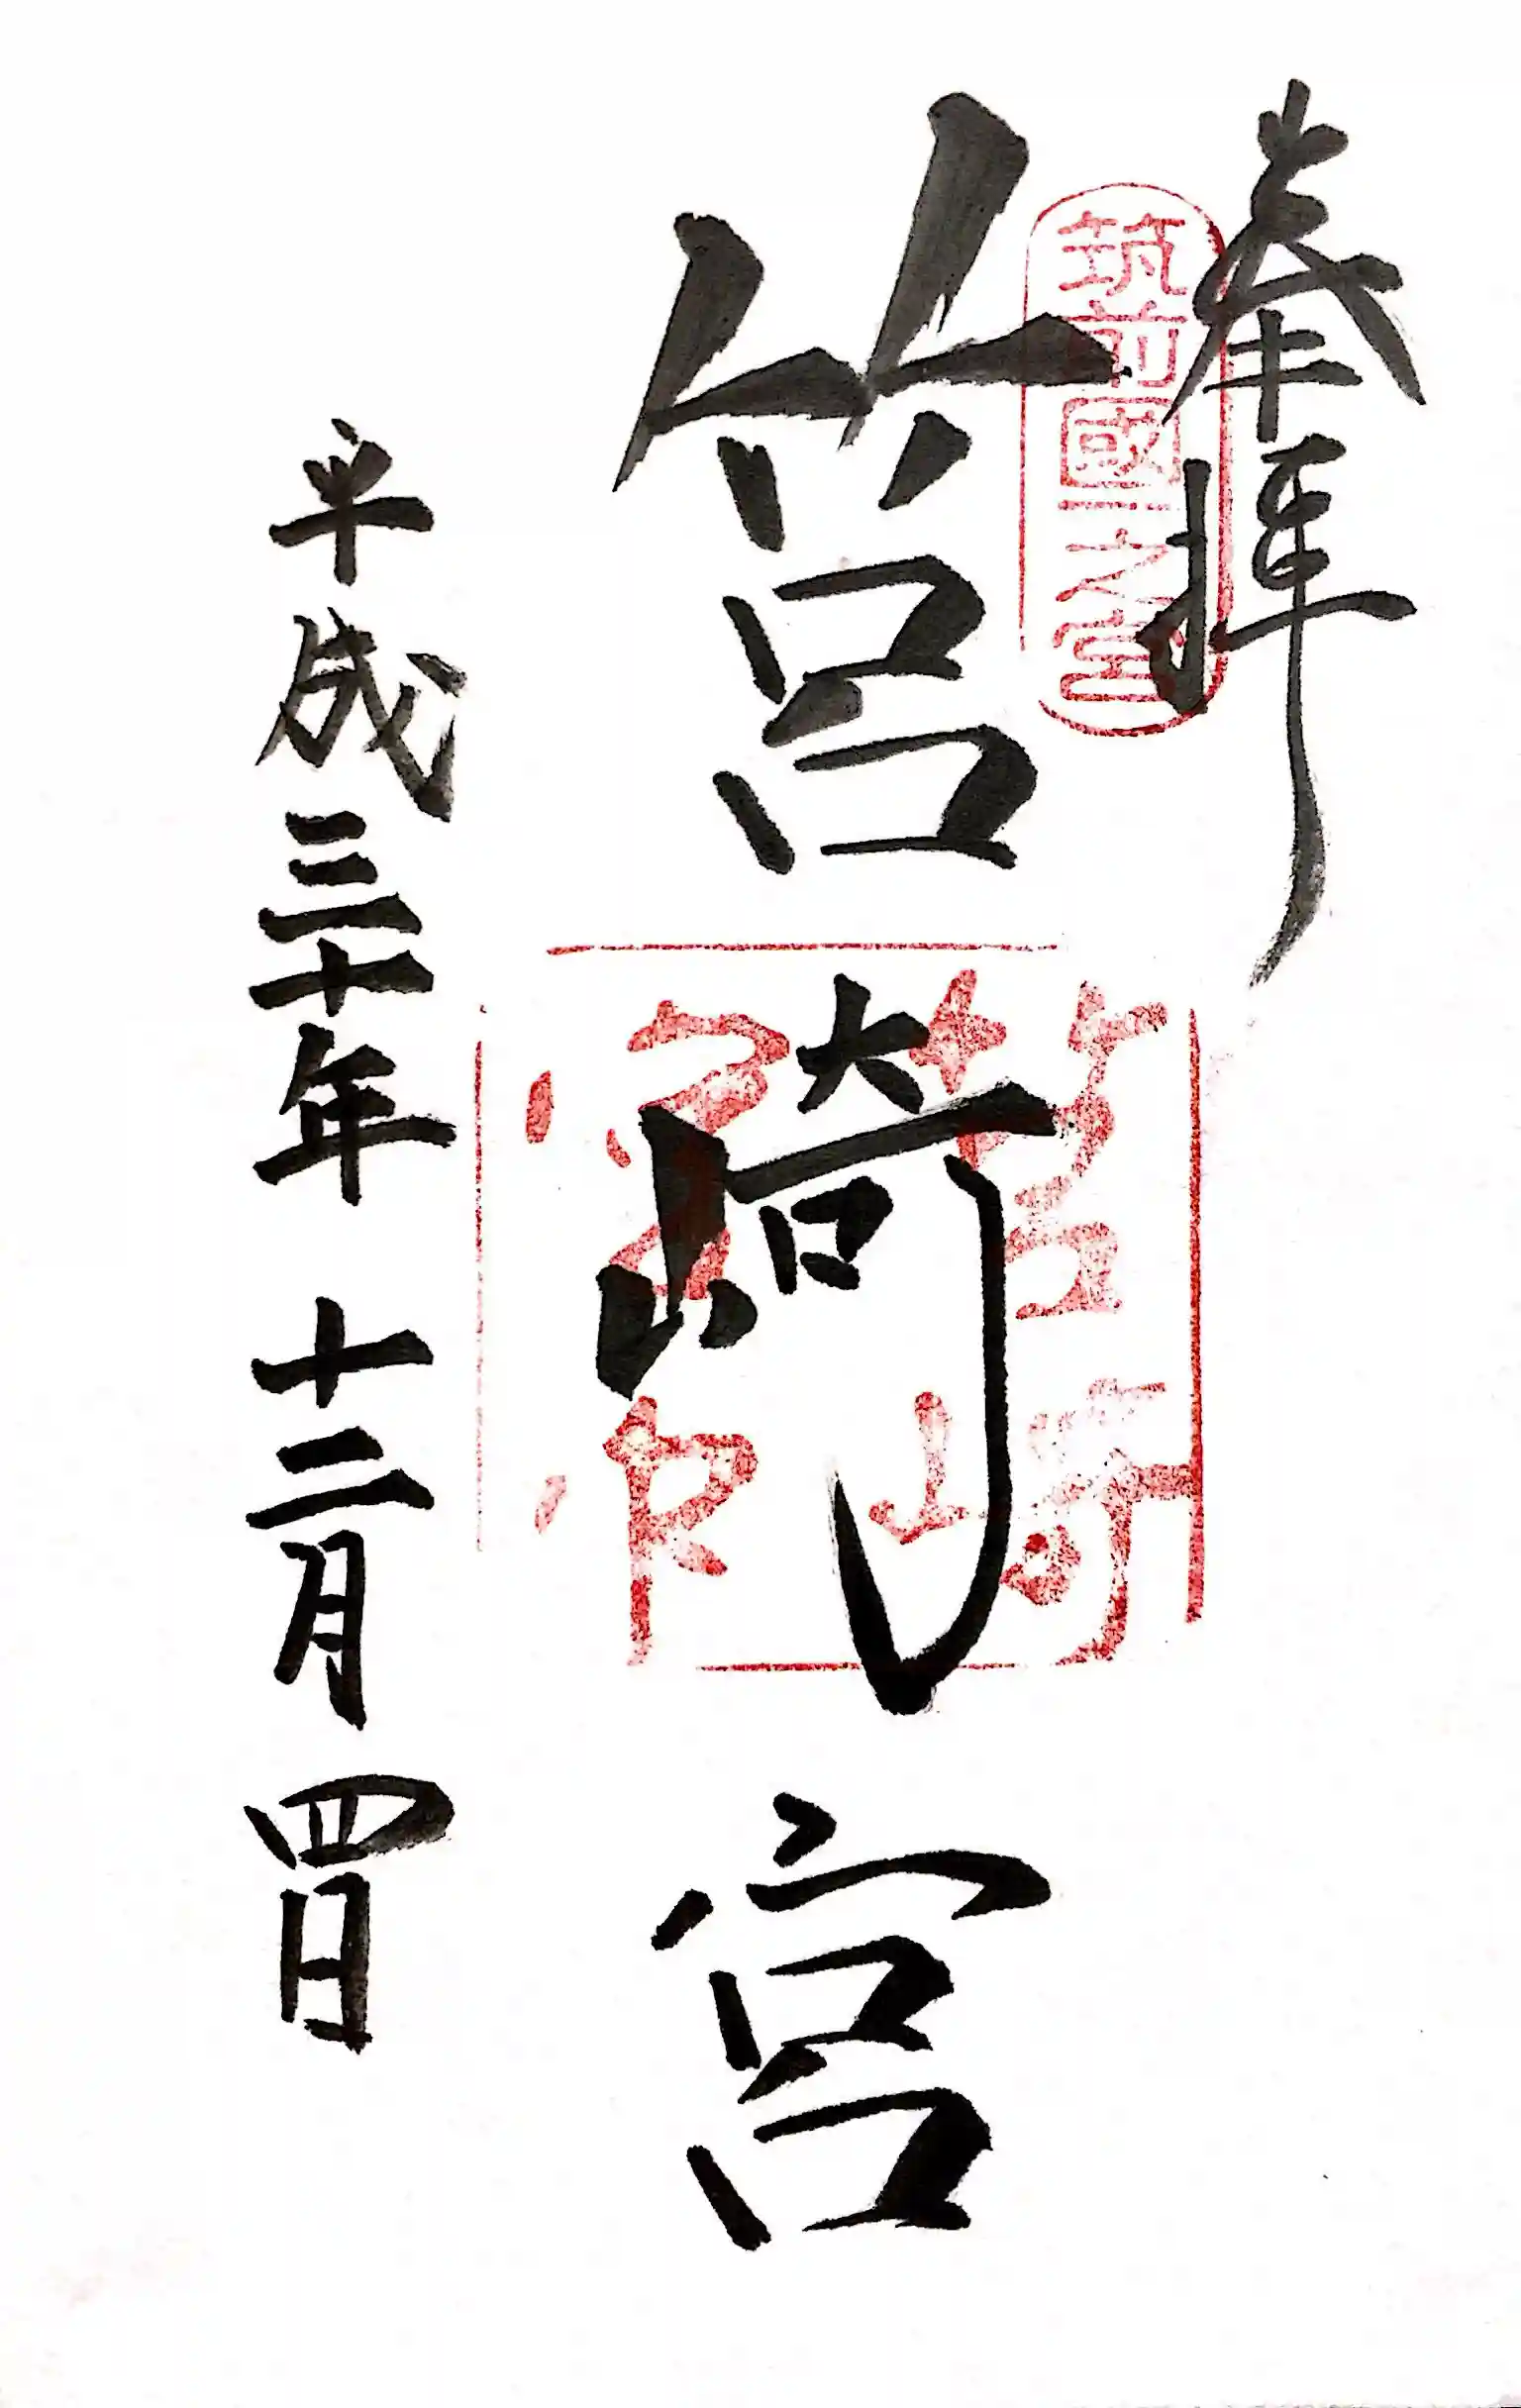 奉拝
筑前國一之宮
筥崎宮
筥崎宮印
平成三十年 十二月 四日